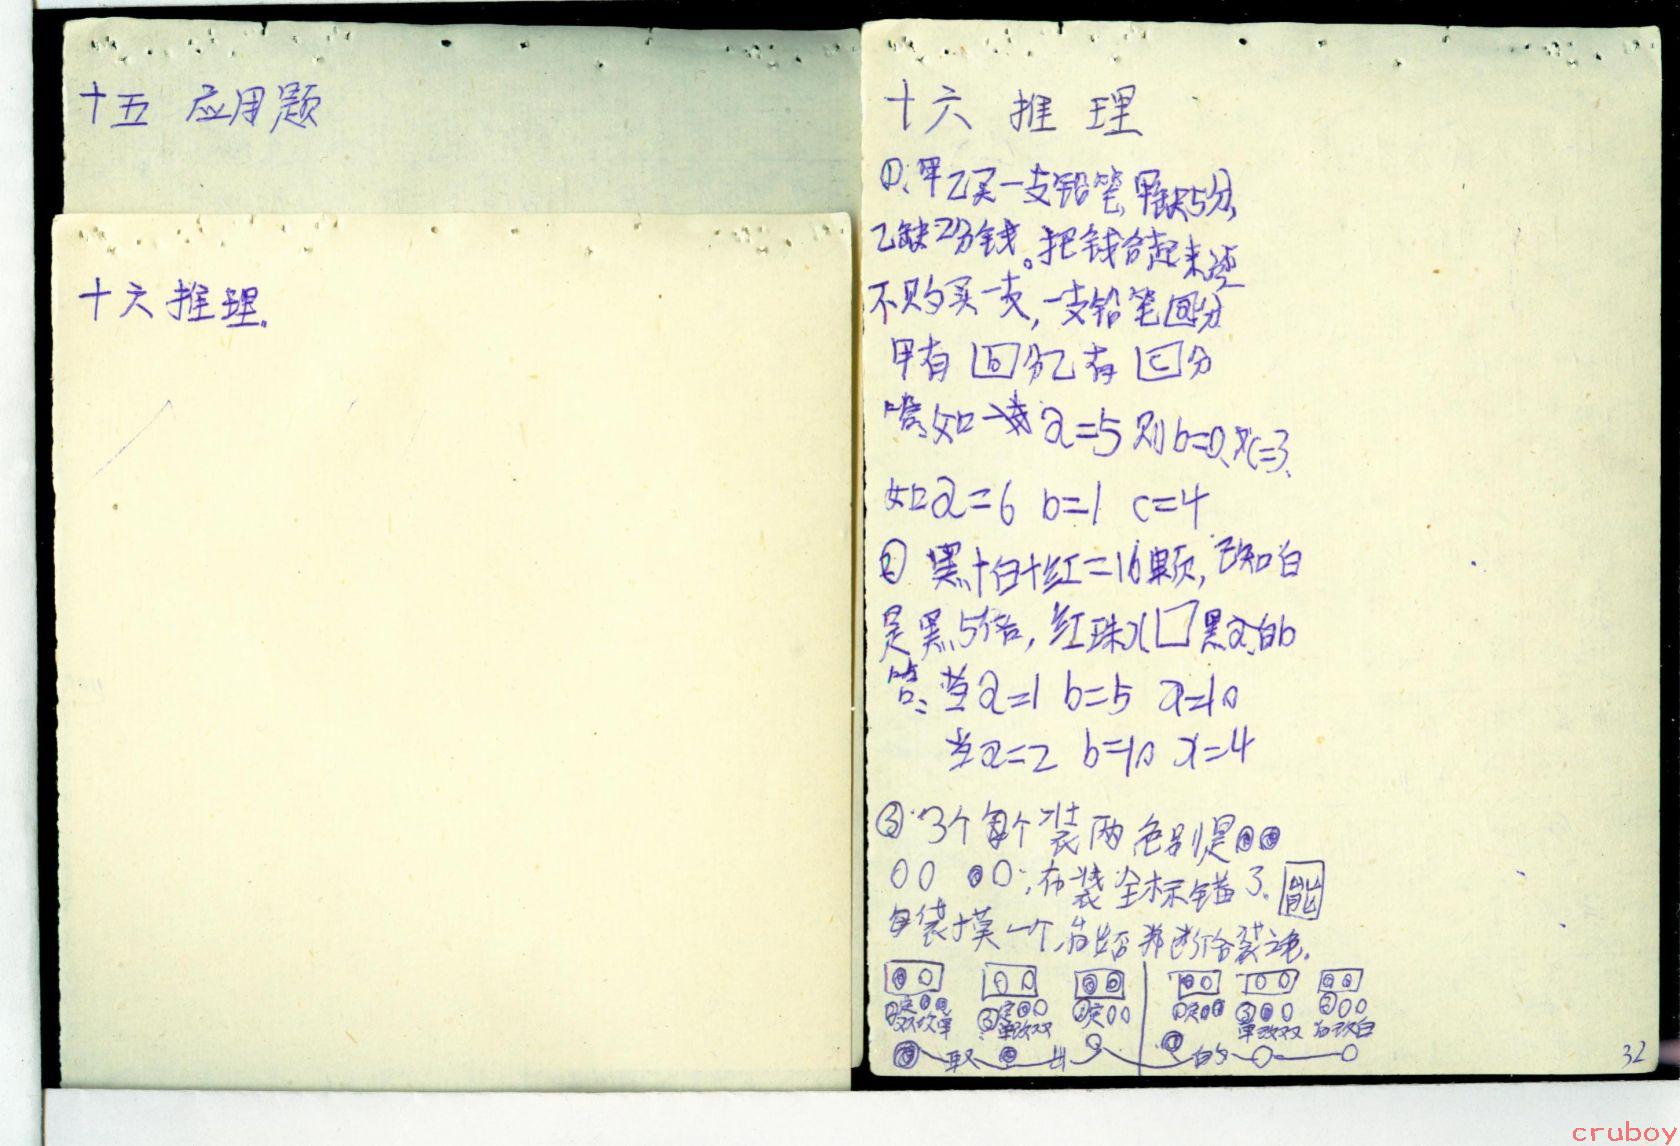 十五 应用题
十六 推理.
十六 推 理
①、甲乙买一支铅笔,甲缺5分,
乙缺2分钱。把钱合起来还
不够买一支,一支铅笔a分
甲有 b 分乙有 c 分
答:如 a=5 则 b=0、c=3、
如a=6 b=1 c=4
② 黑+白+红=16颗,已知白
是黑5倍,红珠x□黑a白b
答:当a=1 b=5 x=10
当a=2 b=10 x=4
③ 3个每个装两色别是
布袋全标错了. 能
每袋摸一个,
取 出 的
32
cruboy